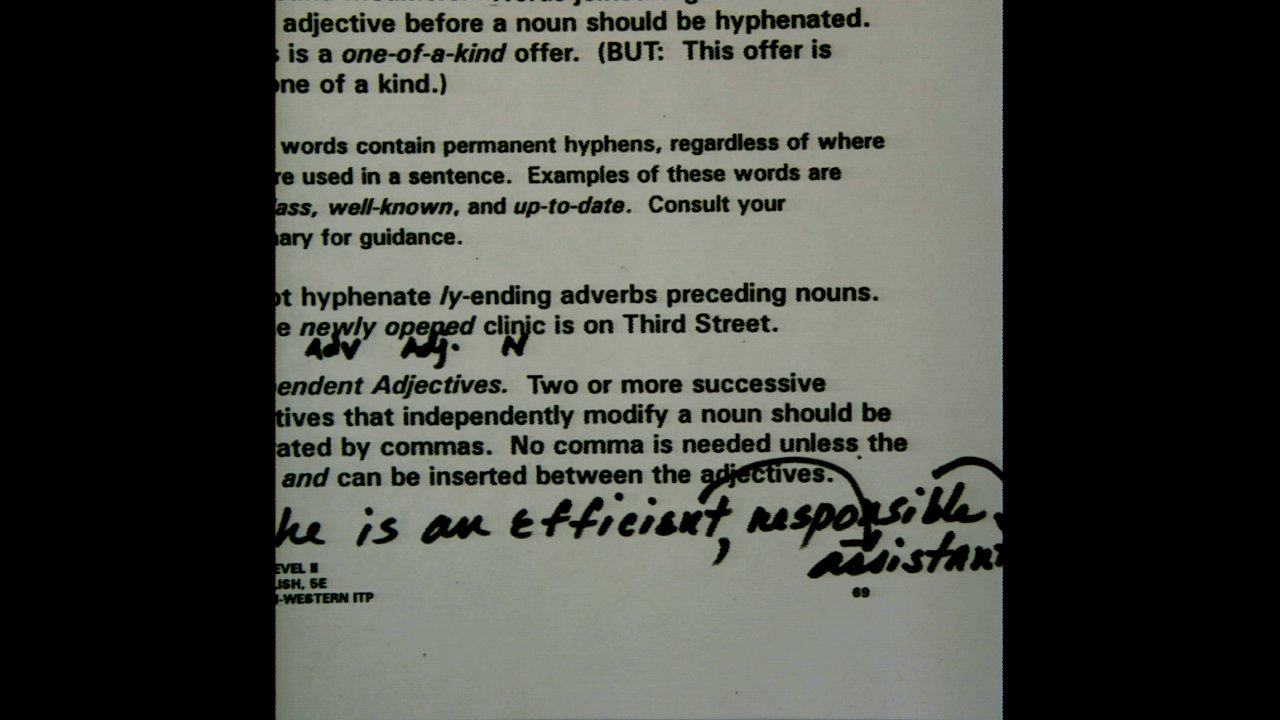 adjective before a noun should be hyphenated.
is a one-of-a-kind offer. (BUT: This offer is
one of a kind.)
words contain permanent hyphens, regardless of where
re used in a sentence. Examples of these words are
ass, well-known, and up-to-date. Consult your
ary for guidance.
ot hyphenate ly-ending adverbs preceding nouns.
e newly opened clinic is on Third Street.
Adv Adj. N
endent Adjectives. Two or more successive
tives that independently modify a noun should be
ated by commas. No comma is needed unless the
and can be inserted between the adjectives.
he is an efficient, responsible
assistant
EVEL II
ISH, 5E
-WESTERN ITP
69